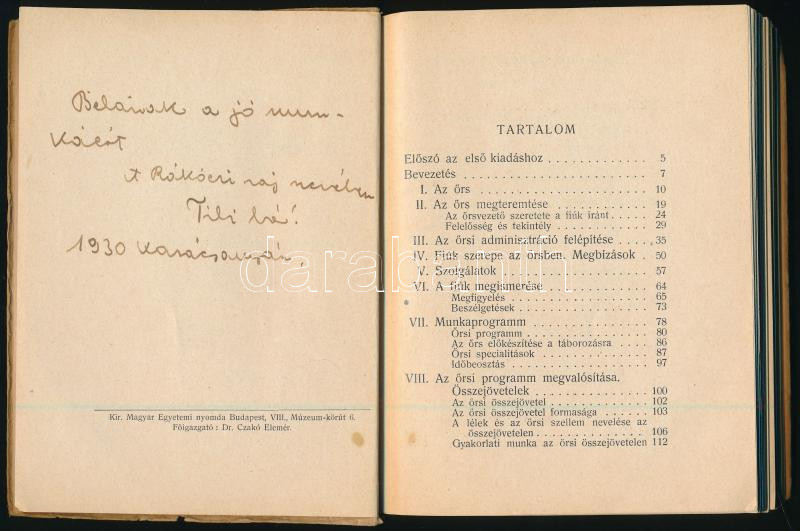 Belának a jó mun-
káért
A Rákóczi raj nevében
Tili bá!
1930 karácsonyán.
Kir. Magyar Egyetemi nyomda Budapest, VIII., Múzeum-körút 6.
Főigazgató : Dr. Czakó Elemér.
TARTALOM
Előszó az első kiadáshoz . . . . . . . . . . . . . 5
Bevezetés . . . . . . . . . . . . . . . . . . . . 7
I. Az őrs . . . . . . . . . . . . . . . . . . . 10
II. Az őrs megteremtése . . . . . . . . . . . . 19
Az őrsvezető szeretete a fiúk iránt . . . . . 24
Felelősség és tekintély . . . . . . . . . . . 29
III. Az őrsi administráció felépítése . . . . . . . 35
IV. Fiúk szerepe az őrsben. Megbízások . . . . 50
V. Szolgálatok . . . . . . . . . . . . . . . . 57
VI. A fiúk megismerése . . . . . . . . . . . . 64
Megfigyelés . . . . . . . . . . . . . . . . 65
Beszélgetések . . . . . . . . . . . . . . . 73
VII. Munkaprogramm . . . . . . . . . . . . . . 78
Őrsi programm . . . . . . . . . . . . . . 80
Az őrs előkészítése a táborozásra . . . . . 86
Őrsi specialitások . . . . . . . . . . . . . 87
Időbeosztás . . . . . . . . . . . . . . . . 97
VIII. Az őrsi programm megvalósítása.
Összejövetelek . . . . . . . . . . . . . . 100
Az őrsi összejövetel . . . . . . . . . . . . 102
Az őrsi összejövetel formasága . . . . . . 103
A lélek és az őrsi szellem nevelése az
összejövetelen . . . . . . . . . . . . . . 106
Gyakorlati munka az őrsi összejövetelen 112
darabanth